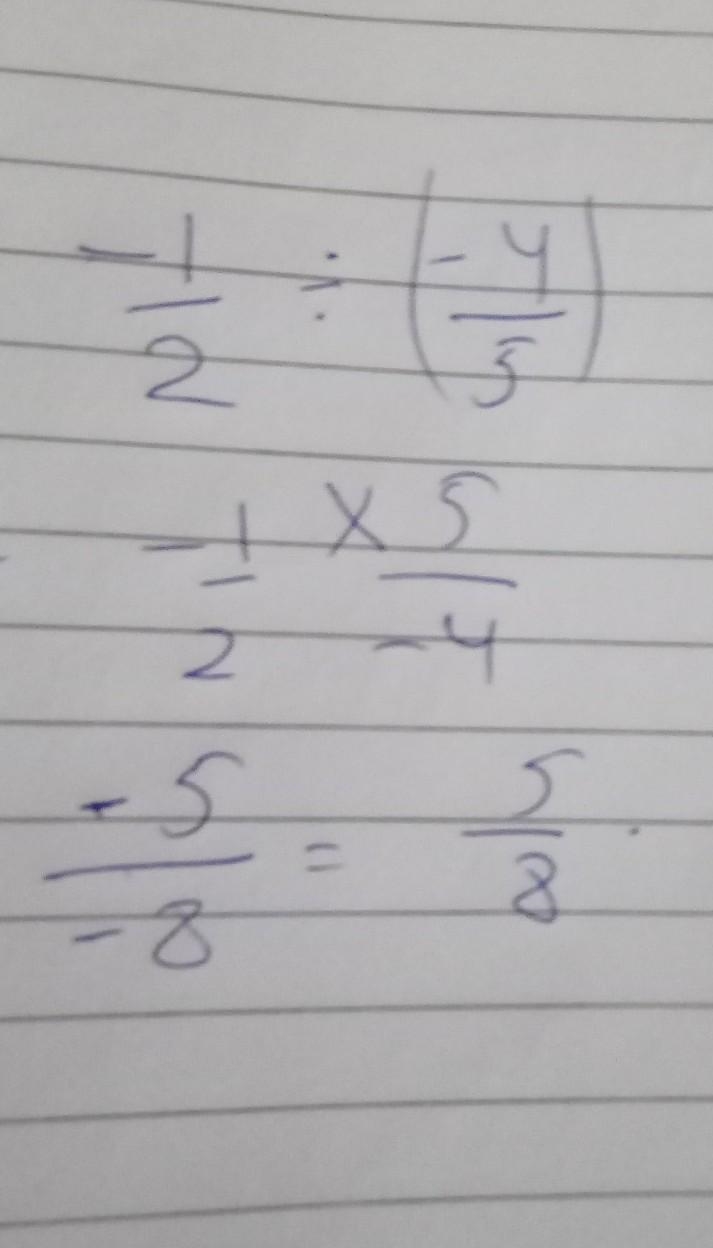 -1/2 ÷ (-4/5)
-1/2 × 5/-4
-5/-8 = 5/8.